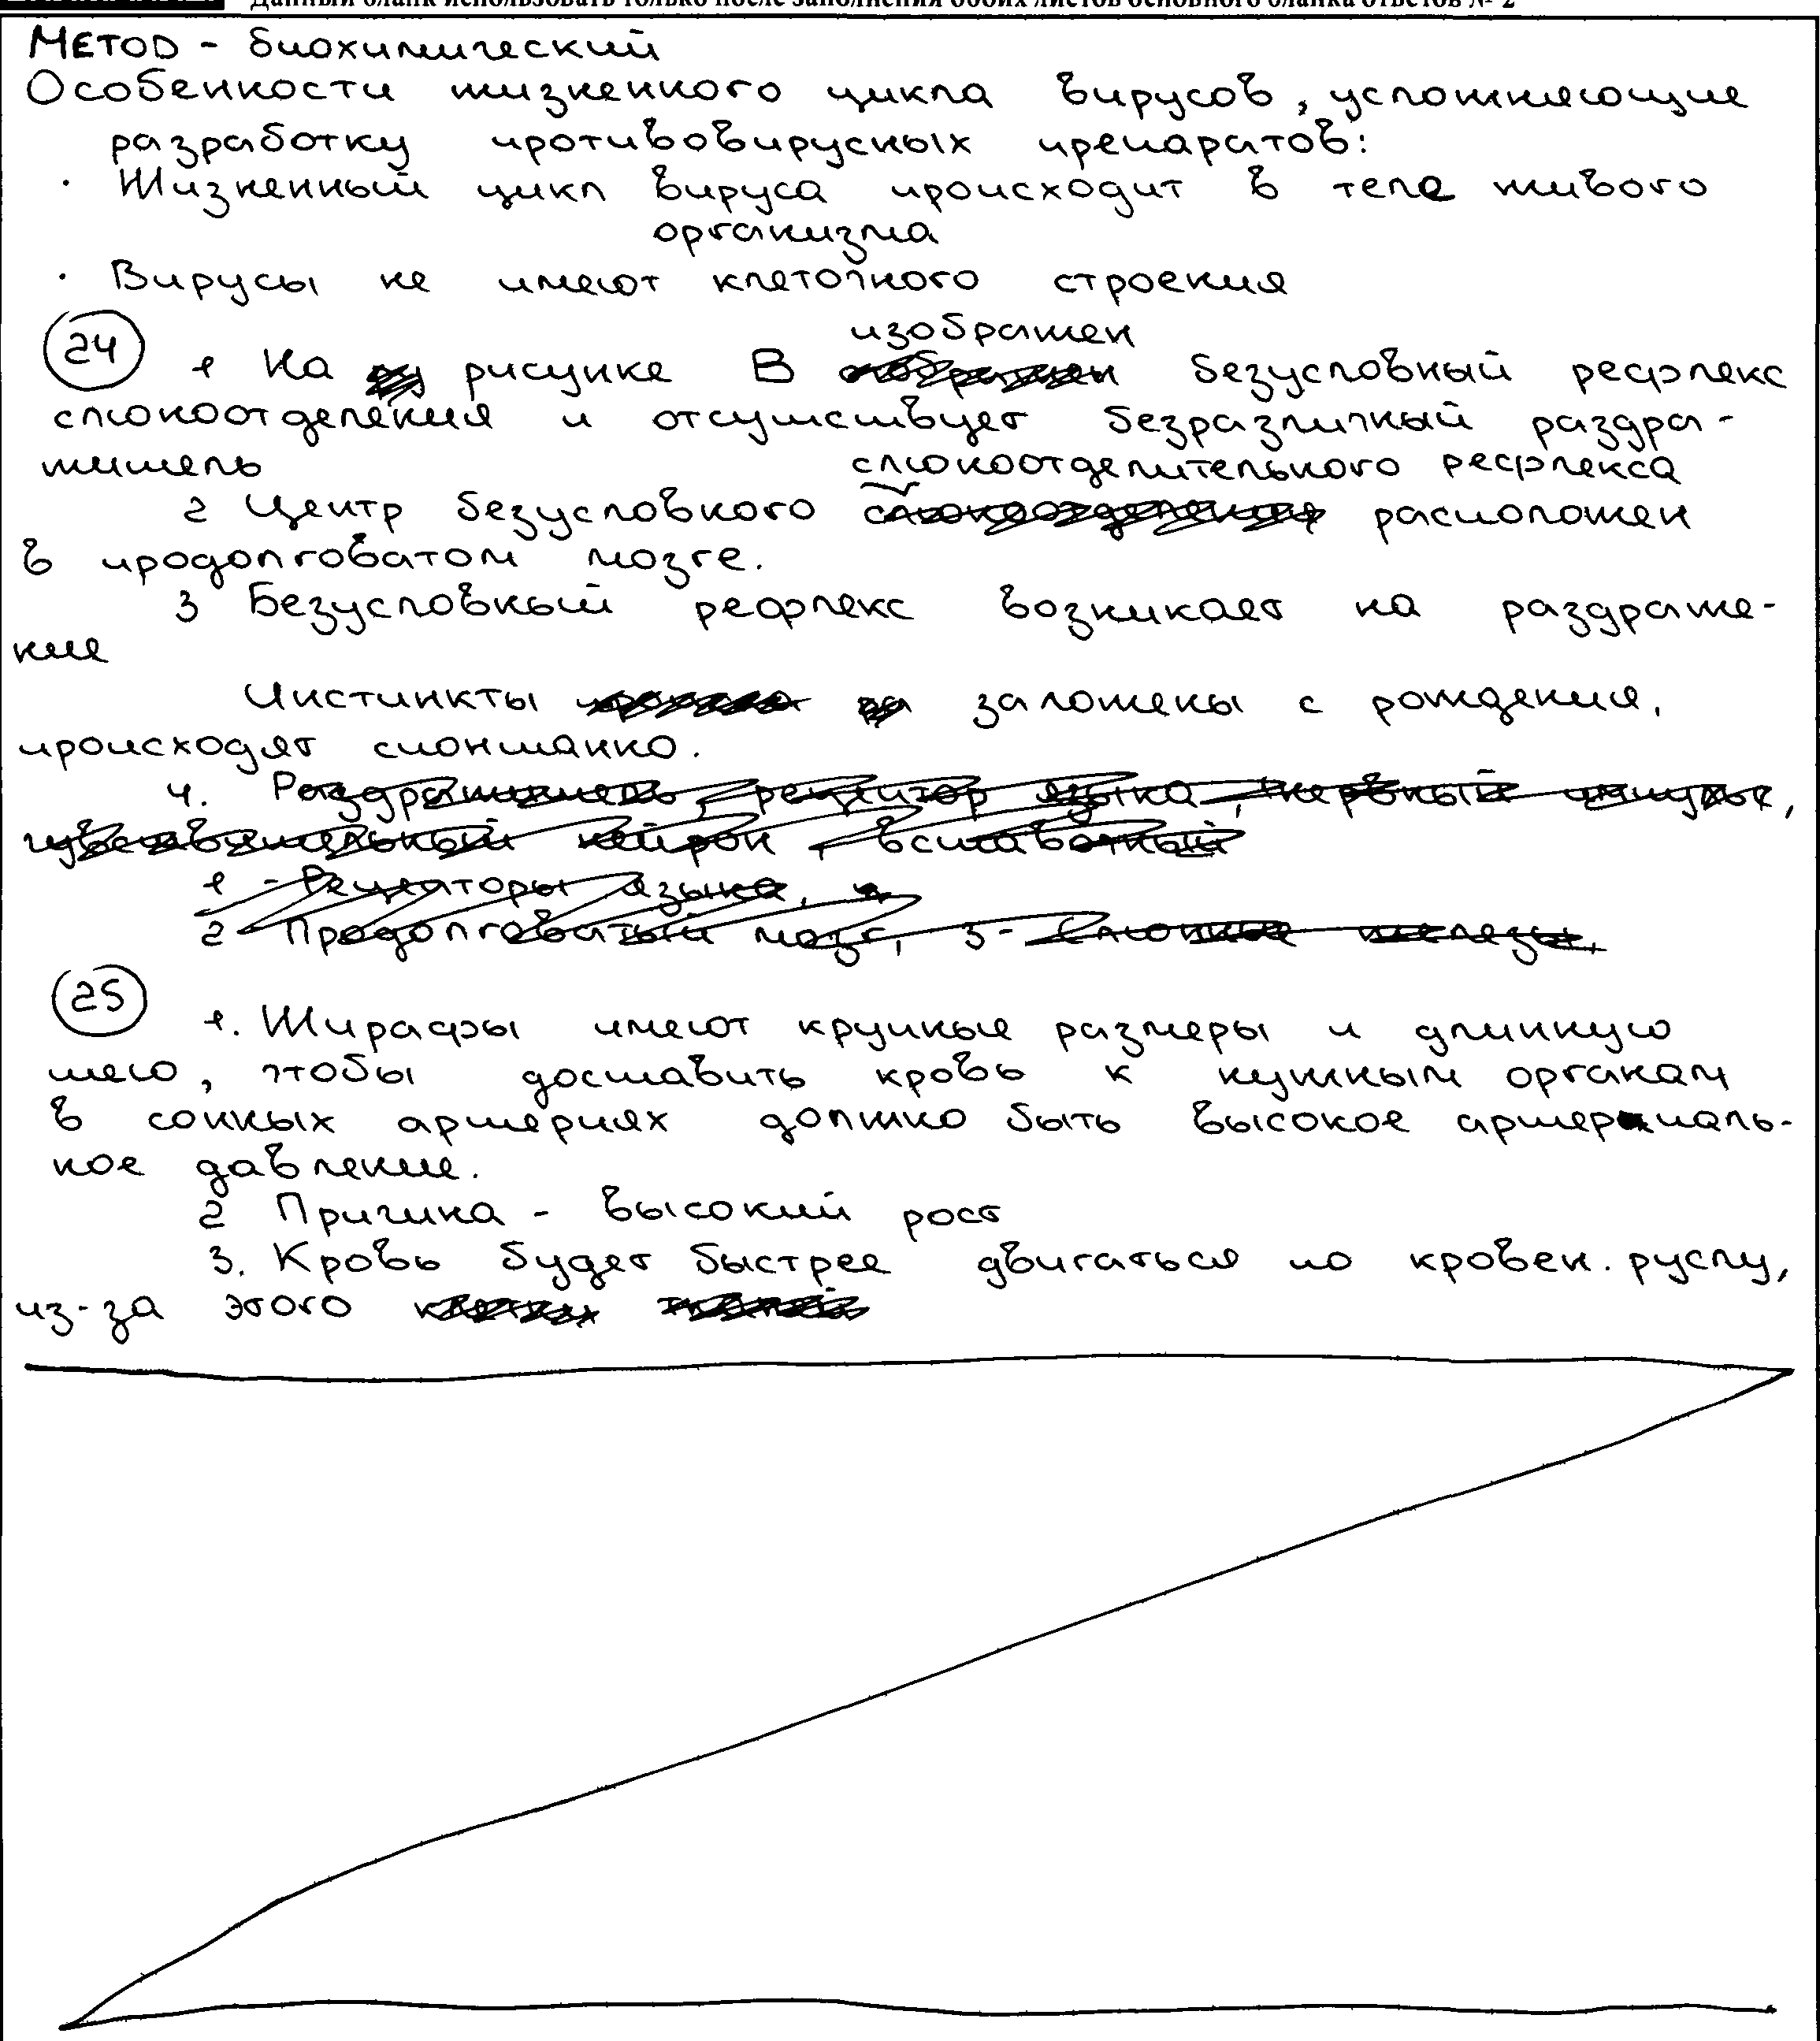 Данный бланк использовать только после заполнения обоих листов основного бланка ответов № 2
Метод - биохимический
Особенности жизненного цикла вирусов, усложняющие
разработку противовирусных препаратов:
· Жизненный цикл вируса происходит в теле живого
организма
· Вирусы не имеют клеточного строения
24 1 На рисунке В изображен безусловный рефлекс
слюноотделения и отсутствует безразличный раздра-
житель
2 Центр безусловного слюноотделительного рефлекса расположен
в продолговатом мозге.
3 Безусловный рефлекс возникает на раздраже-
ние
Инстинкты заложены с рождения,
происходят спонтанно.
4. Раздражитель, рецептор языка, нервный импульс,
чувствительный нейрон, вставочный
1 - Рецепторы языка,
2 Продолговатый мозг, 3 - Слюнные железы,
25 1. Жирафы имеют крупные размеры и длинную
шею, чтобы доставить кровь к нужным органам
в сонных артериях должно быть высокое артериаль-
ное давление.
2 Причина - высокий рост
3. Кровь будет быстрее двигаться по кровен. руслу,
из-за этого